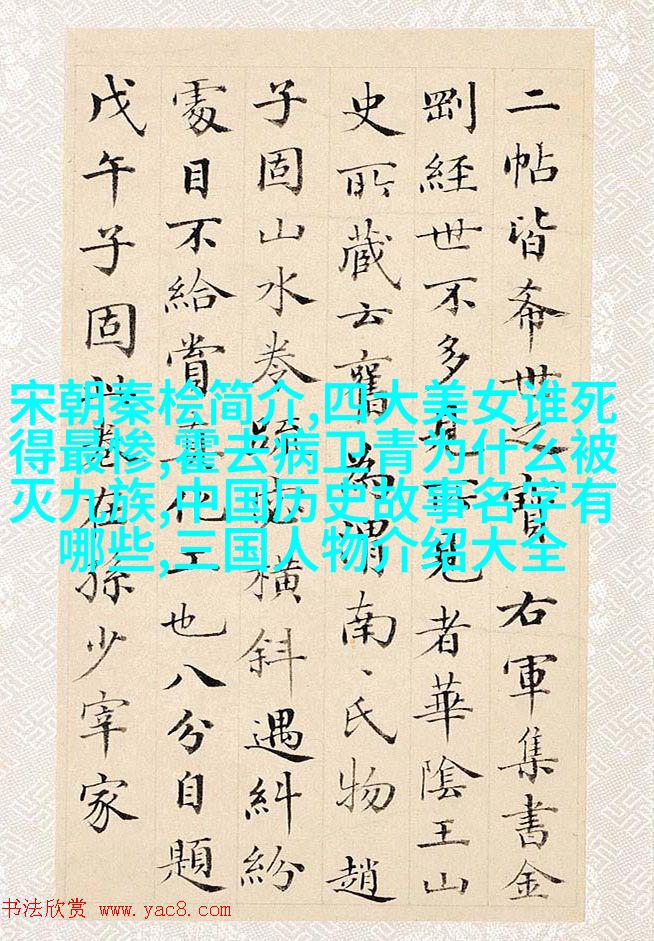 二帖皆希世之寶右軍集書金
剛經世不多見見者華陰王山
史所藏云舊為謂南、氏物趙
子固山水卷橫斜遇糾紛
處目不給賞真化工也八分自題
戊午子固此卷在孫少宰家
宋朝秦桧简介,四大美女谁死
得最惨,霍去病卫青为什么被
灭九族,中国历史故事名字有
哪些,三国人物介绍大全
书法欣赏 www.yac8.com